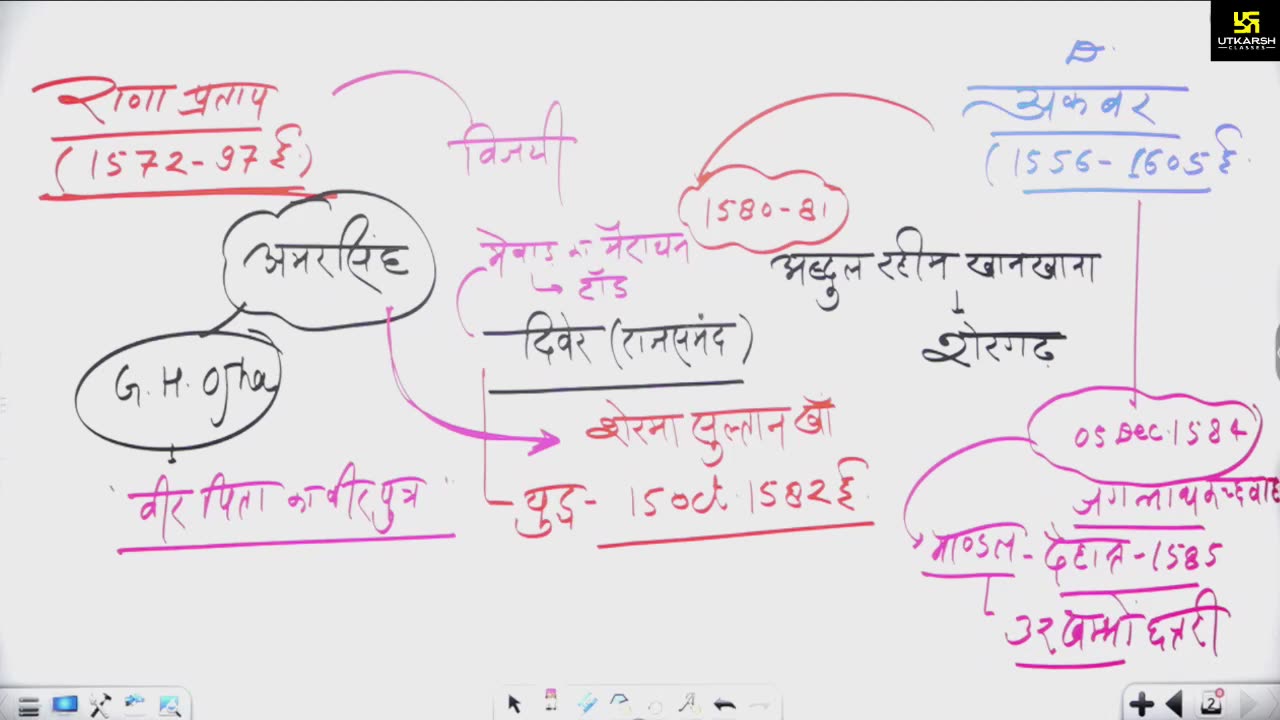 UTKARSH
CLASSES
राणा प्रताप
(1572-97 ई)
अकबर
(1556-1605 ई.
विजयी
1580-81
अमरसिंह
मेवाड़ का मैराथन
→ हॉड
अब्दुल रहीम खानखाना
शेरगढ़
दिवेर (राजसमंद)
G. H. Ojha
सुल्तान खाँ
05 Dec. 1584
"वीर पिता का वीर पुत्र"
युद्ध - 15 Oct. 1582 ई.
जगन्नाथ कच्छवाह
माण्डल - देहान्त - 1585
32 खम्भों छतरी
2